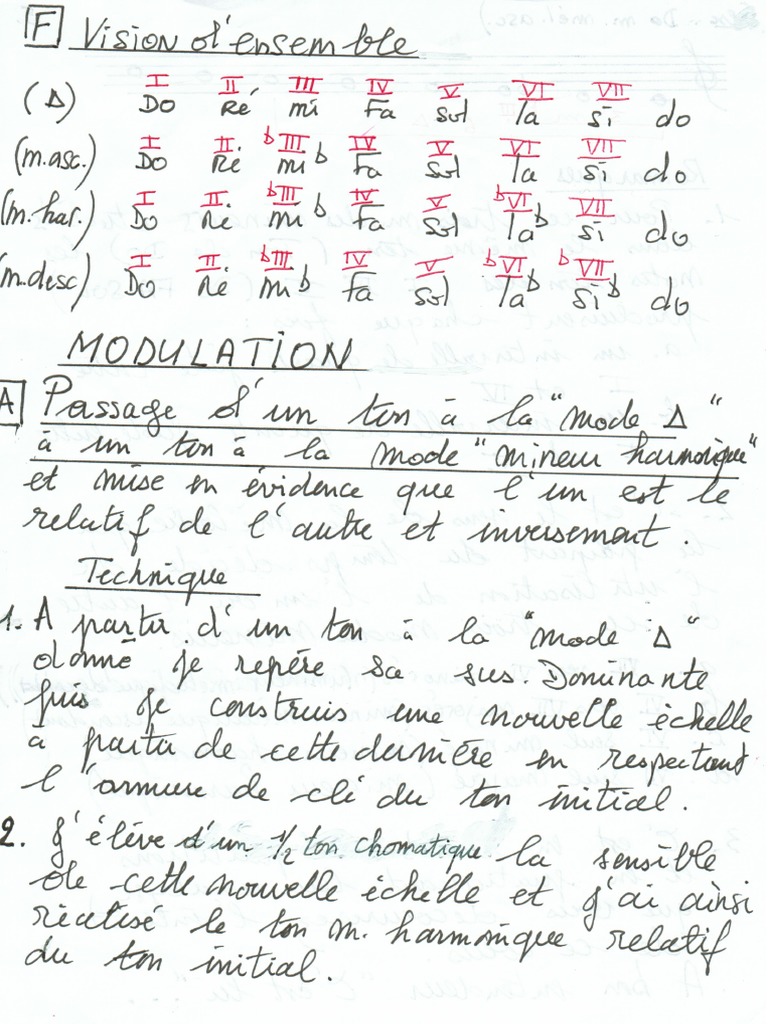 F Vision d'ensemble
I II III IV V VI VII
(Δ) Do Ré mi Fa sol la si do
I II bIII IV V VI VII
(m.asc.) Do Ré mi b Fa sol la si do
I II bIII IV V bVI VII
(m. har.) Do Ré mi b Fa sol la b si do
I II bIII IV V bVI bVII
(m.desc) Do Ré mi b Fa sol la b si b do
MODULATION
A Passage d'un ton à la "mode Δ"
à un ton à la mode "mineur harmonique"
et mise en évidence que l'un est le
relatif de l'autre et inversement.
Technique
1. A partir d'un ton à la "mode Δ"
donné je repère sa sus. Dominante
puis je construis une nouvelle échelle
a partir de cette dernière en respectant
l'armure de clé du ton initial.
2. J'élève d'un 1/2 ton chomatique la sensible
de cette nouvelle échelle et j'ai ainsi
réalisé le ton m. harmonique relatif
du ton initial.